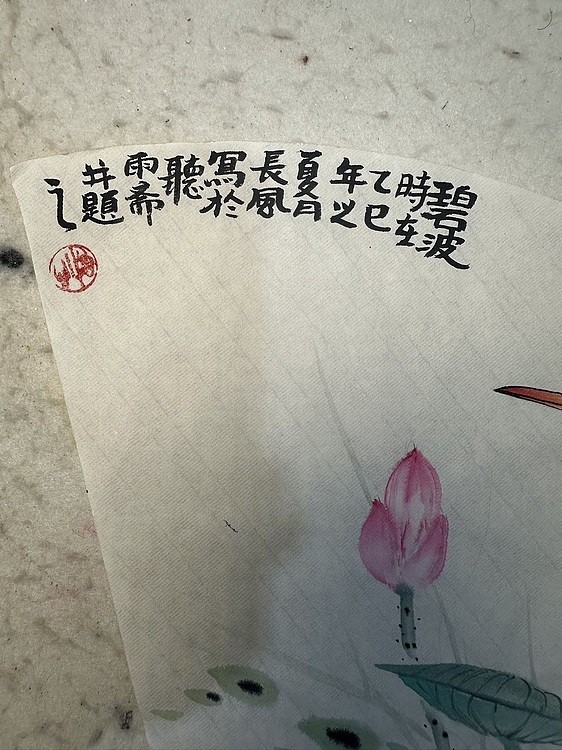 碧波
時在
乙巳
年之
夏月
長風
寫於
聽
雨帚
并題
之